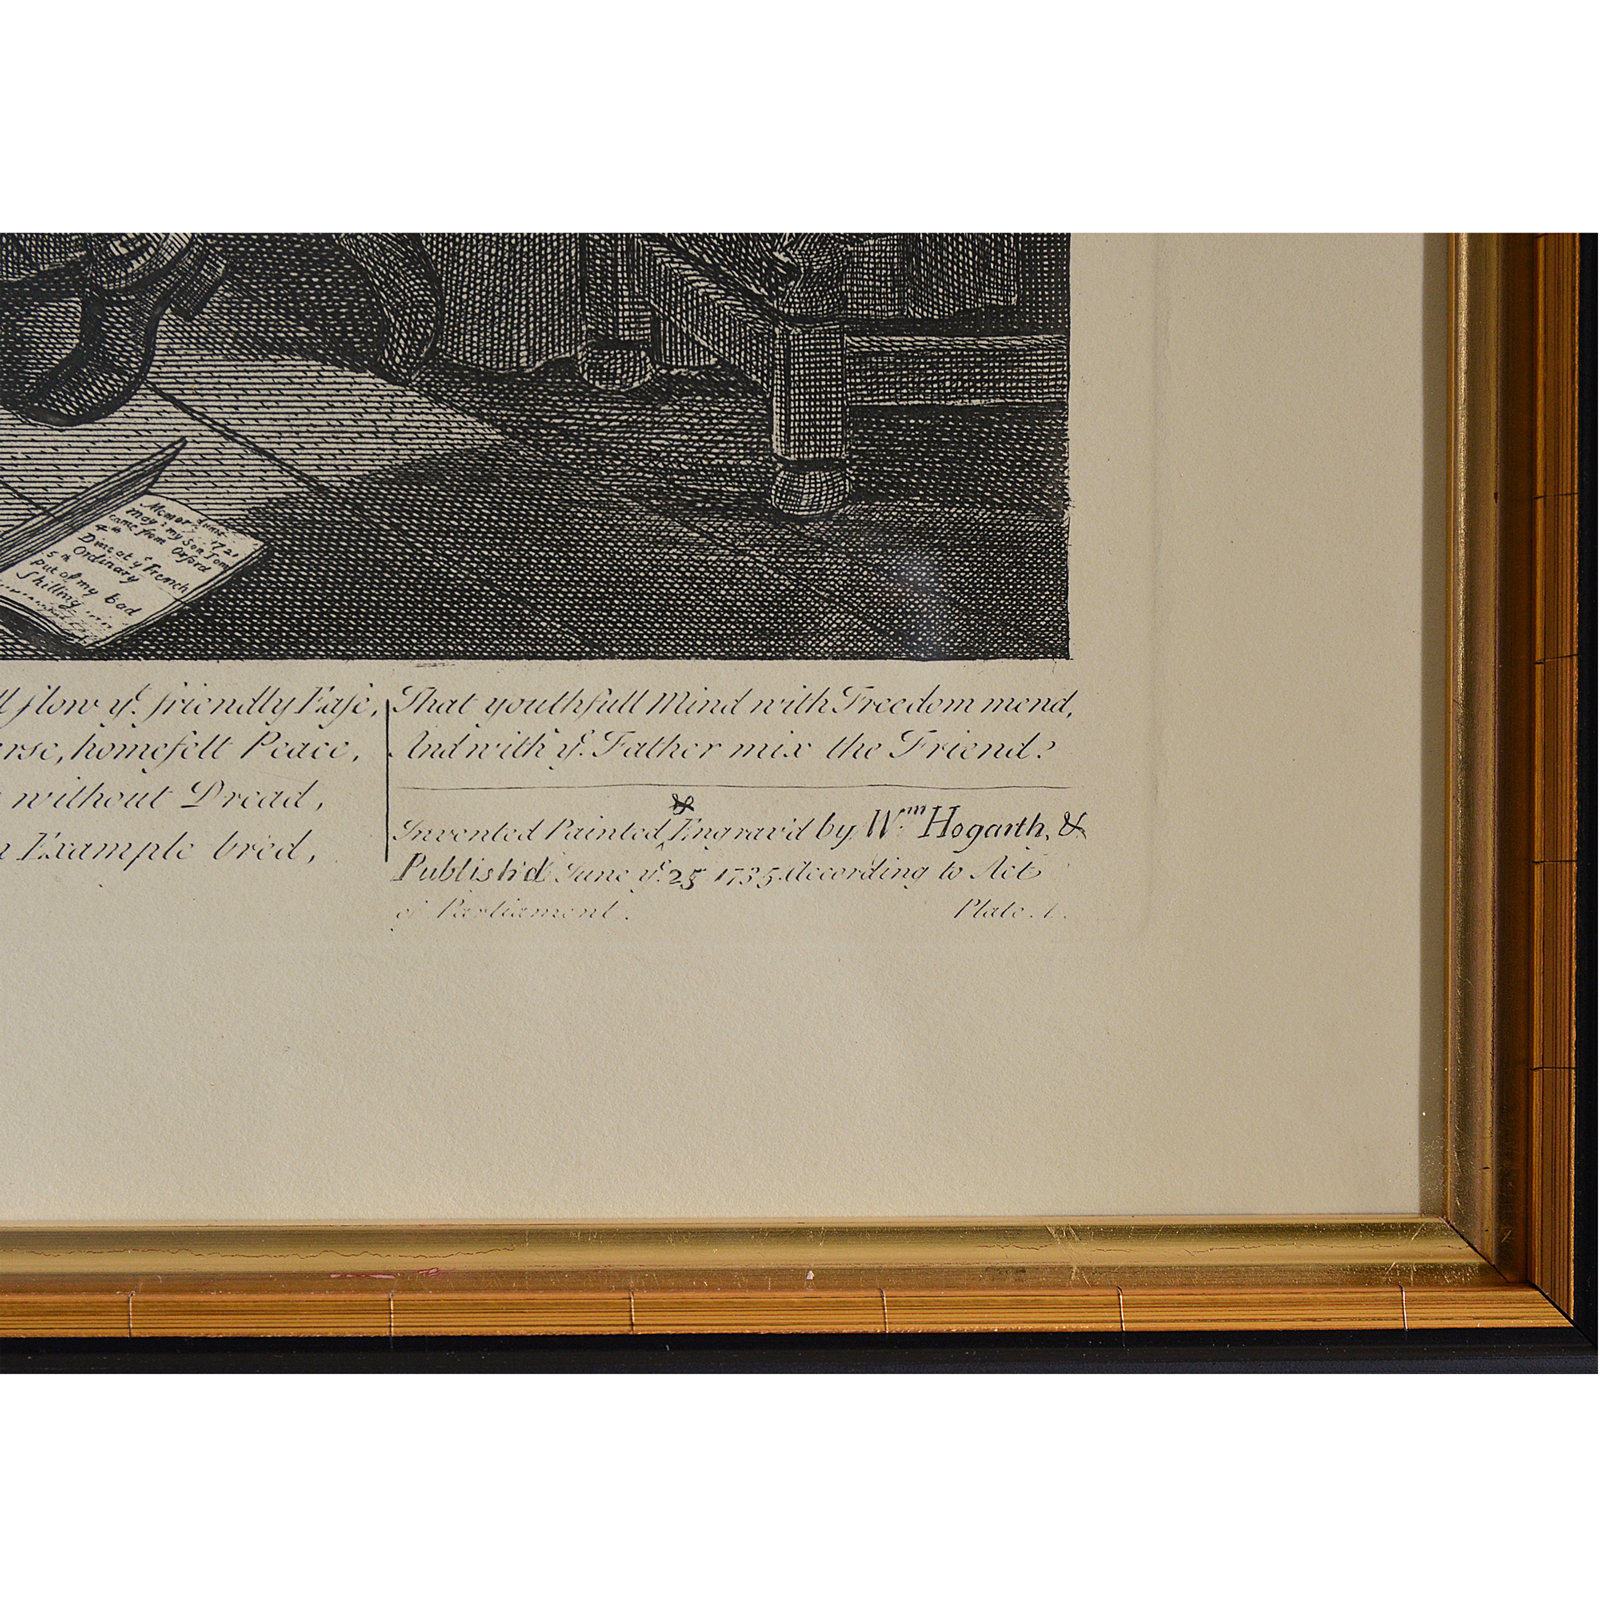 Memor: June
1721
May : my Son Tom
came from Oxford
4th
Dine at ye French
Ordinary
5th
put of my bad
Shilling
flow ye. friendly Ease,
homefelt Peace,
without Dread,
Example bred,
That youthfull Mind with Freedom mend,
And with ye. Father mix the Friend?
Invented Painted & Engrav'd by Wm. Hogarth, &
Publish'd June ye. 25 1735. According to Act
of Parliament.
Plate. 1.